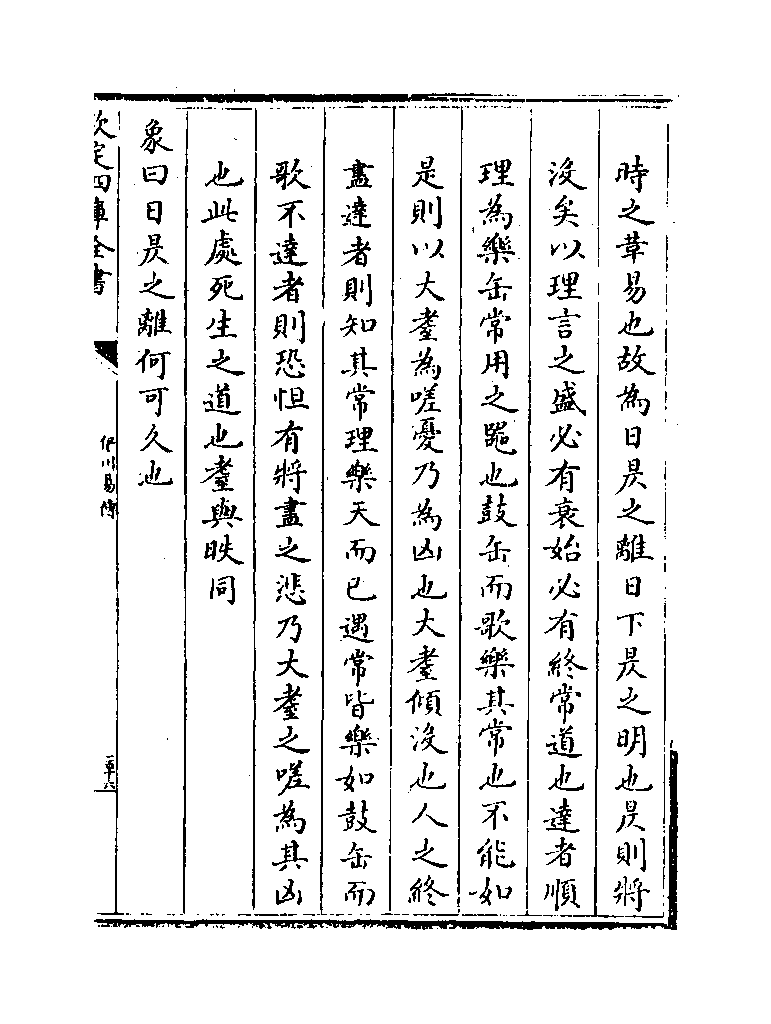 時之革易也故為日昃之離日下昃之明也昃則將
沒矣以理言之盛必有衰始必有終常道也達者順
理為樂缶常用之器也鼓缶而歌樂其常也不能如
是則以大耋為嗟憂乃為凶也大耋傾沒也人之終
盡達者則知其常理樂天而已遇常皆樂如鼓缶而
歌不達者則恐怛有將盡之悲乃大耋之嗟為其凶
也此處死生之道也耋與昳同
象曰日昃之離何可久也
欽定四庫全書
伊川易傳